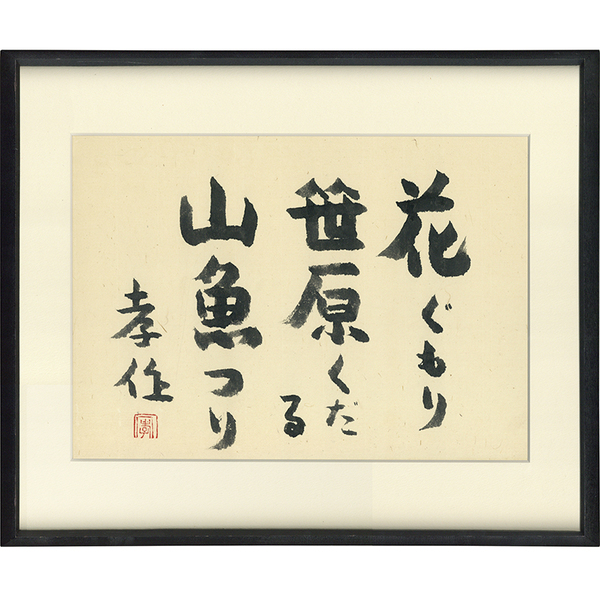 花ぐもり
笹原くだる
山魚つり
孝作
孝